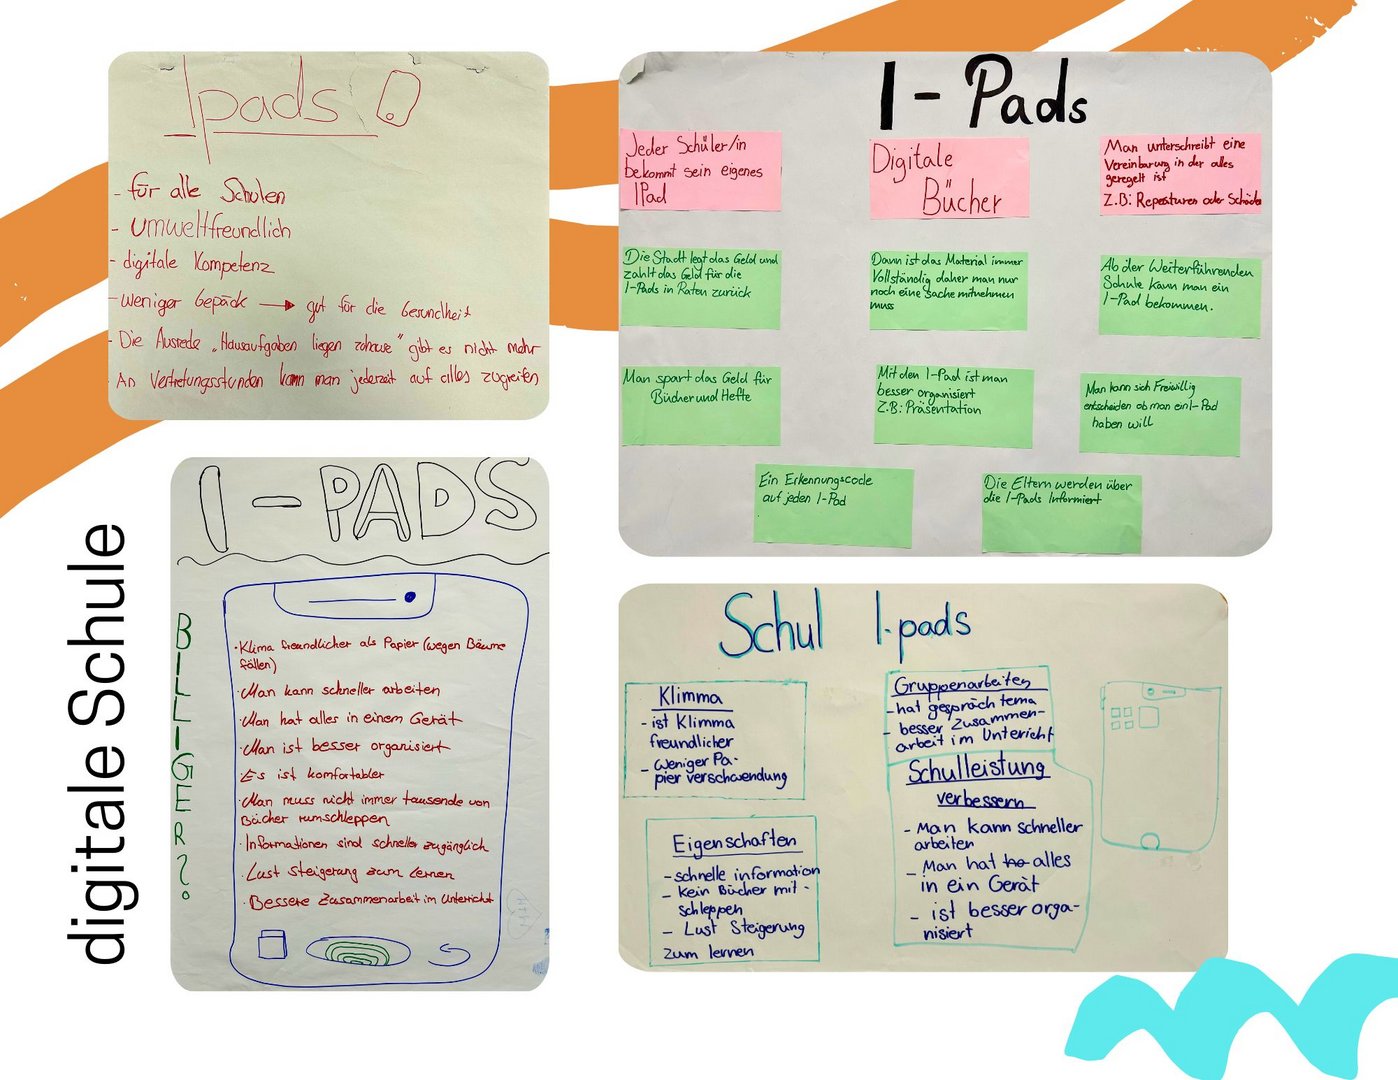 digitale Schule
Ipads
- für alle Schulen
- umweltfreundlich
- digitale Kompetenz
- weniger Gepäck → gut für die Gesundheit
- Die Ausrede „Hausaufgaben liegen zohause" gibt es nicht mehr
- An Vertretungsstunden kann man jederzeit auf alles zugreifen
I - Pads
Jeder Schüler/in
bekommt sein eigenes
IPad
Digitale
Bücher
Man unterschreibt eine
Vereinbarung in der alles
geregelt ist
Z.B: Reperaturen oder Schäden
Die Stadt legt das Geld und
zahlt das Geld für die
I-Pads in Raten zurück
Dann ist das Material immer
Vollständig daher man nur
noch eine Sache mitnehmen
muss
Ab der Weiterführenden
Schule kann man ein
I-Pad bekommen.
Man spart das Geld für
Bücher und Hefte
Mit den I-Pad ist man
besser organisiert
Z.B: Präsentation
Man kann sich Freiwillig
entscheiden ob man ein I-Pad
haben will
Ein Erkennungscode
auf jeden I-Pad
Die Eltern werden über
die I-Pads Informiert
I - PADS
BILLIGER?
· Klima freundlicher als Papier (wegen Bäume
fällen)
· Man kann schneller arbeiten
· Man hat alles in einem Gerät
· Man ist besser organisiert
· Es ist komfortabler
· Man muss nicht immer tausende von
Bücher rumschleppen
· Informationen sind schneller zugänglich
· Lust Steigerung zum Lernen
· Bessere Zusammenarbeit im Unterricht
Schul I-pads
Klimma
- ist Klimma
freundlicher
- Weniger Pa-
pier verschwendung
Eigenschaften
- schnelle information
- Kein Bücher mit-
schleppen
- Lust Steigerung
zum lernen
Gruppenarbeiten
- hat gespräch tema
- besser Zusammen-
arbeit im Unterricht
Schulleistung
verbessern
- Man kann schneller
arbeiten
- Man hat alles
in ein Gerät
- ist besser orga-
nisiert